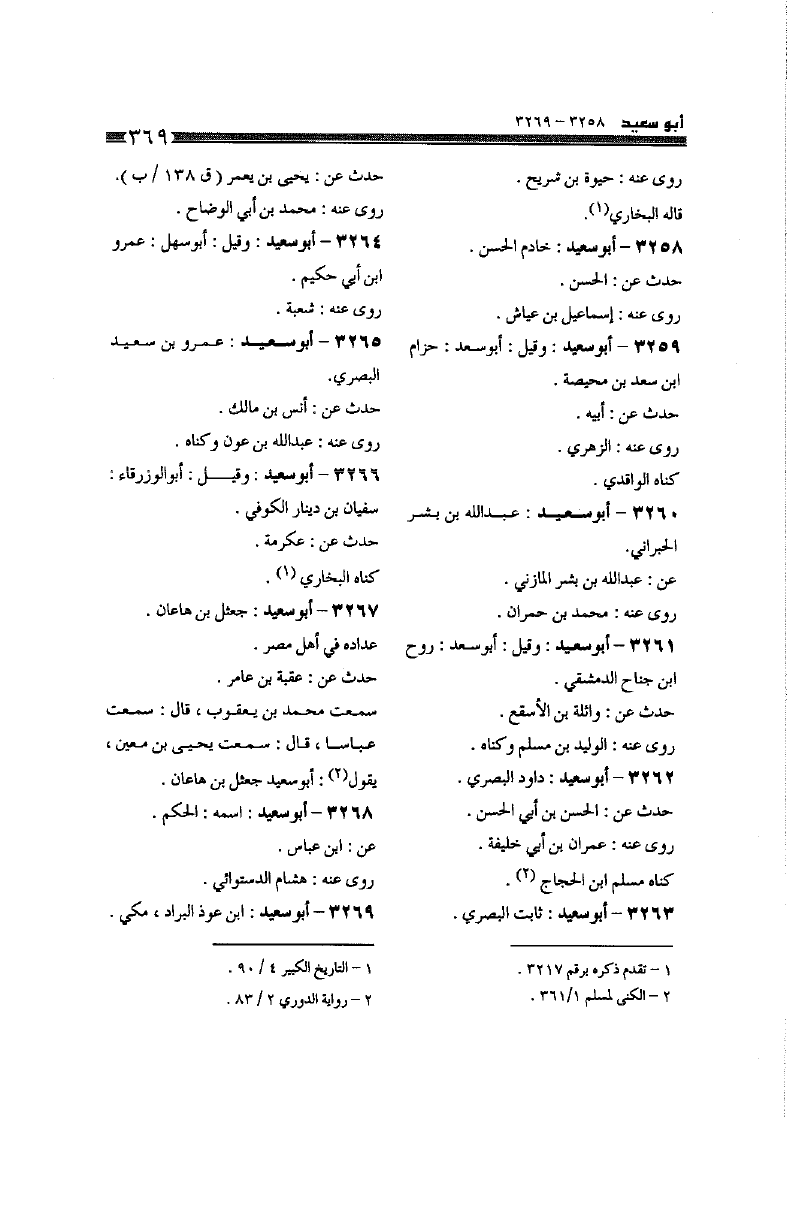 أبو سعيد ٣٢٥٨ – ٣٢٦٩
٣٦٩
روى عنه : حيوة بن شريح .
قاله البخاري(١).
٣٢٥٨ – أبو سعيد : خادم الحسن .
حدث عن : الحسن .
روى عنه : إسماعيل بن عياش .
٣٢٥٩ – أبو سعيد : وقيل : أبوسعد : حزام
ابن سعد بن محيصة .
حدث عن : أبيه .
روى عنه : الزهري .
كناه الواقدي .
٣٢٦٠ – أبو سعيد : عبدالله بن بشر
الحبراني.
عن : عبدالله بن بشر المازني .
روى عنه : محمد بن حمران .
٣٢٦١ – أبو سعيد : وقيل : أبوسعد : روح
ابن جناح الدمشقي .
حدث عن : واثلة بن الأسقع .
روى عنه : الوليد بن مسلم وكناه .
٣٢٦٢ – أبو سعيد : داود البصري .
حدث عن : الحسن بن أبي الحسن .
روى عنه : عمران بن أبي خليفة .
كناه مسلم ابن الحجاج (٢) .
٣٢٦٣ – أبو سعيد : ثابت البصري .
١ – تقدم ذكره برقم ٣٢١٧ .
٢ – الكنى لمسلم ٣٦١/١ .
حدث عن : يحيى بن يعمر ( ق ١٣٨ / ب ).
روى عنه : محمد بن أبي الوضاح .
٣٢٦٤ – أبو سعيد : وقيل : أبوسهل : عمرو
ابن أبي حكيم .
روى عنه : شعبة .
٣٢٦٥ – أبو سعيد : عمرو بن سعيد
البصري.
حدث عن : أنس بن مالك .
روى عنه : عبدالله بن عون وكناه .
٣٢٦٦ – أبو سعيد : وقيل : أبوالوزرقاء :
سفيان بن دينار الكوفي .
حدث عن : عكرمة .
كناه البخاري (١) .
٣٢٦٧ – أبو سعيد : جعثل بن هاعان .
عداده في أهل مصر .
حدث عن : عقبة بن عامر .
سمعت محمد بن يعقوب ، قال : سمعت
عباسا ، قال : سمعت يحيى بن معين ،
يقول(٢) : أبوسعيد جعثل بن هاعان .
٣٢٦٨ – أبو سعيد : اسمه : الحكم .
عن : ابن عباس .
روى عنه : هشام الدستوائي .
٣٢٦٩ – أبو سعيد : ابن عوذ البراد ، مكي .
١ – التاريخ الكبير ٤ / ٩٠ .
٢ – رواية الدوري ٢ / ٨٣ .